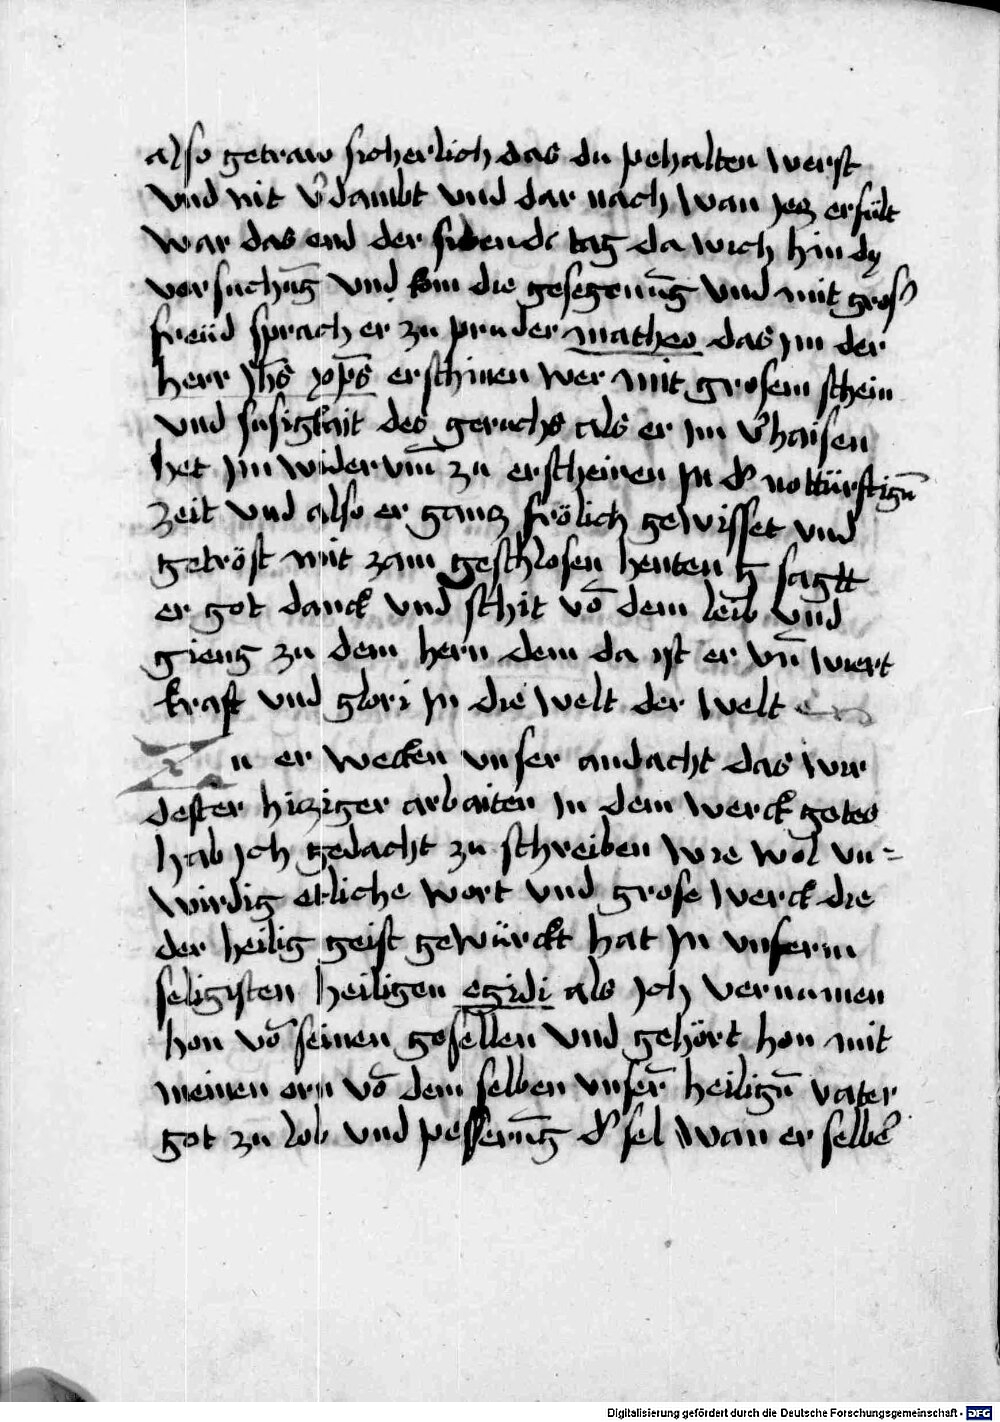 also getraw sicherlich das du pehalten werst
vnd nit v̄dambt vnd dar nach wan yez erfült
war das end der sibende tag da wich hin dÿ
versuchūg vnd kom die gesegenūg vnd mit gros
freüd sprach er zu pruder matheo das ym der
herr yh̄s xp̄s erschinen wer mit grosem schein
vnd susigkait des geruchs als er im v̄haisen
het im widervm̄ zu erscheinen in d̓ nottürftign̄
zeit vnd also er ganz frölich gewisset vnd
getröst mit zam geschlosen henten sagtt
er got danck vnd schit vō dem leib vnd
gieng zu dem hern dem da ist er vn̄ wiert
kraft vnd glori in die welt der welt en
Zu er wecken vnser andacht das wir
dester hiziger arbaiten in dem werck gotes
hab ich gedacht zu schreiben wie wol vn=
wirdig etliche wort vnd grose werck die
der heilig geist gewürckt hat in vnserm
seligisten heiligen egidi als ich vernumen
hon vō seinen gosellen vnd gehört hon mit
meinen orn vō dem selben vnser̄ heilign̄ vater
got zu lob vnd pesserūg d̓ sel wan er selbē